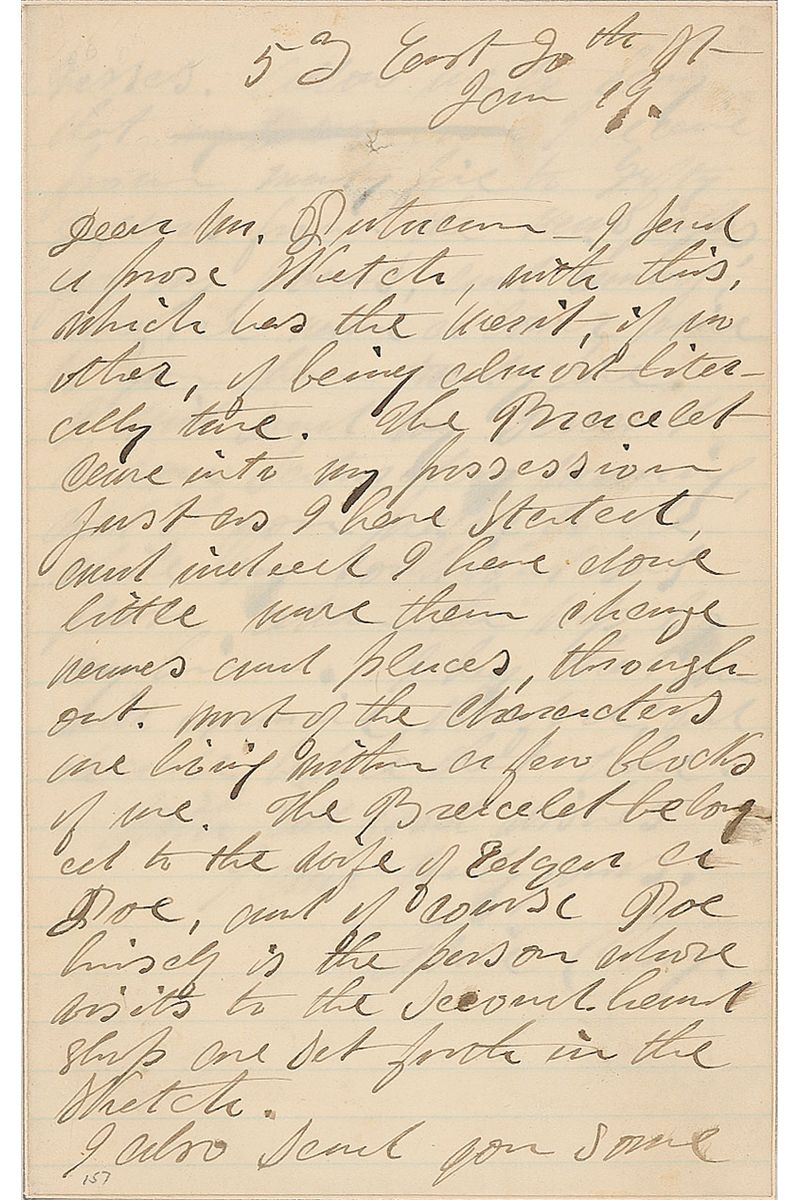 53 East 20th St
Jan 19.
Dear Mr. Putnam – I send
a prose Sketch, with this,
which has the merit, if no
other, of being almost liter-
ally true. The Bracelet
came into my possession
just as I have stated,
and indeed I have done
little more than change
names and places, through-
out. Most of the characters
are living within a few blocks
of me. The Bracelet belong-
ed to the wife of Edgar A
Poe, and of course Poe
himself is the person whose
visits to the second-hand
shop are set forth in the
Sketch.
I also send you some
157